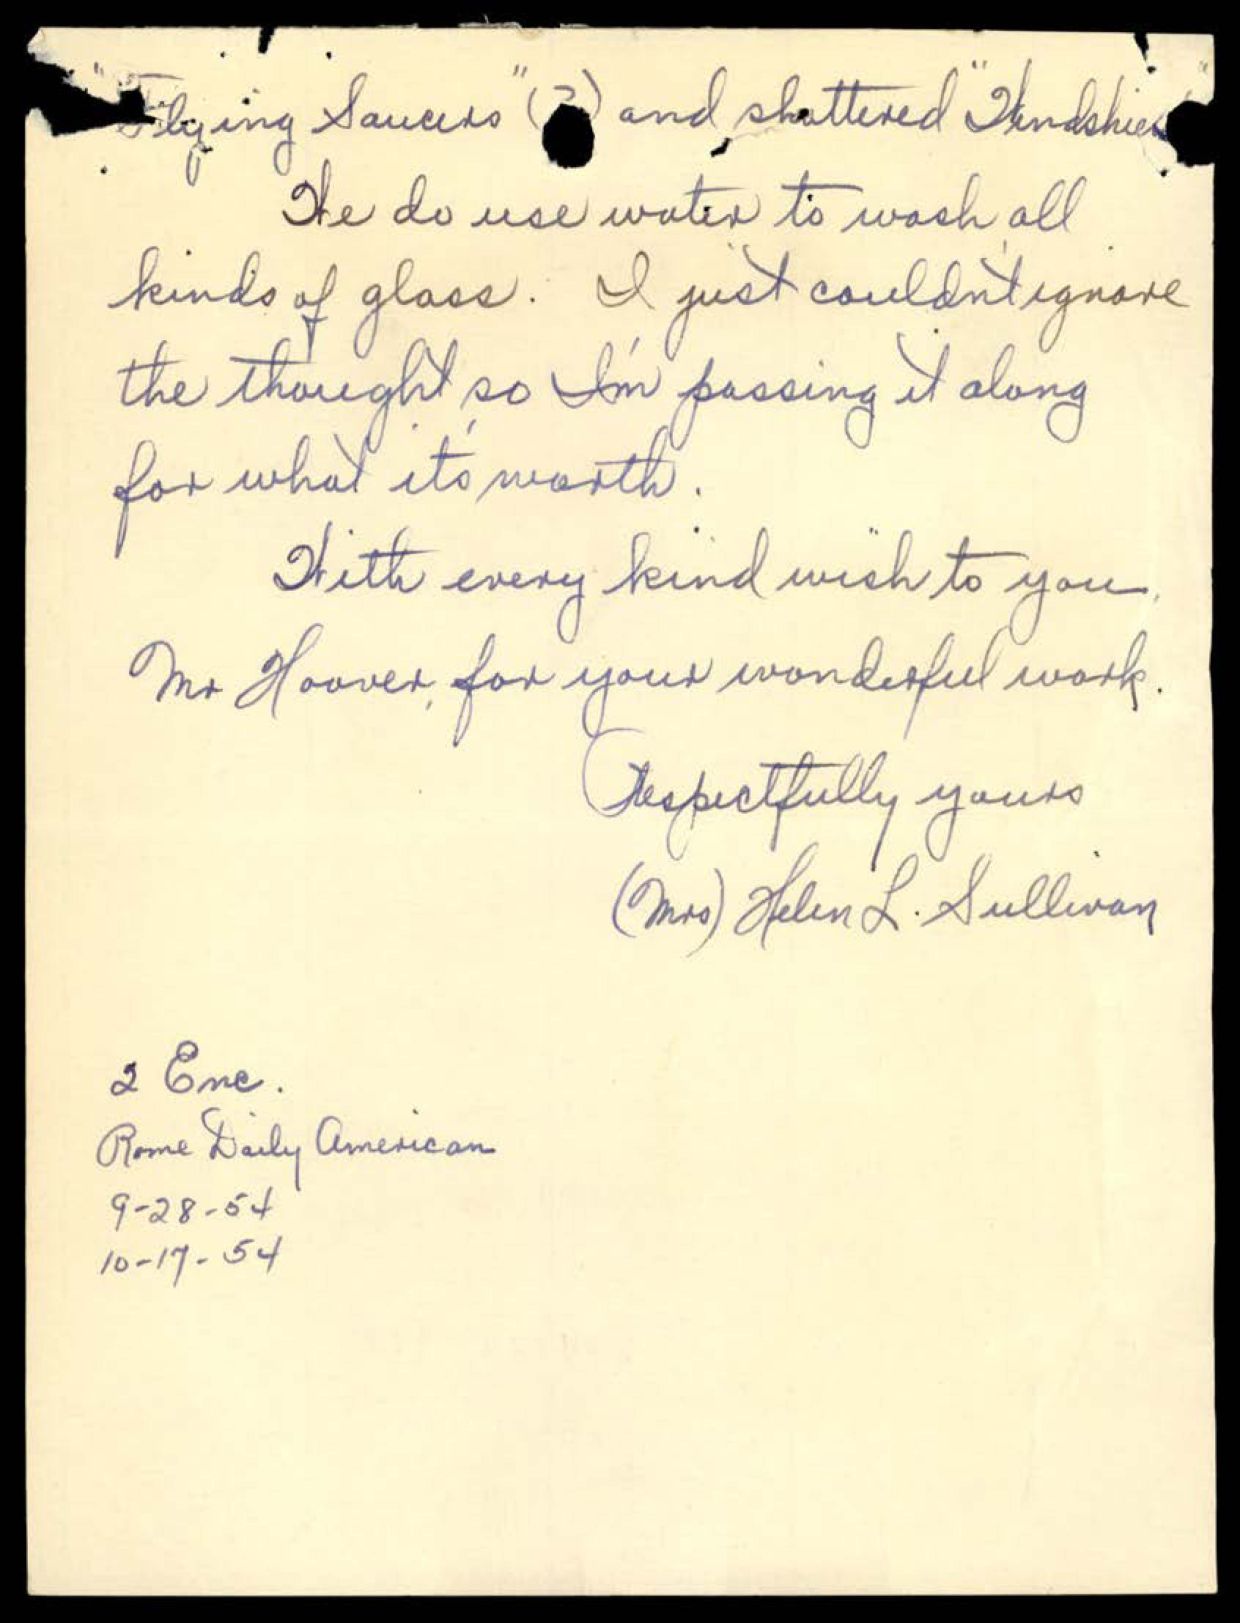 "Flying Saucers" (?) and shattered "Windshie
We do use water to wash all
kinds of glass. I just couldn't ignore
the thought so I'm passing it along
for what it's worth.
With every kind wish to you,
Mr Hoover, for your wonderful work.
Respectfully yours
(Mrs) Helen L. Sullivan
2 Enc.
Rome Daily American
9-28-54
10-17-54